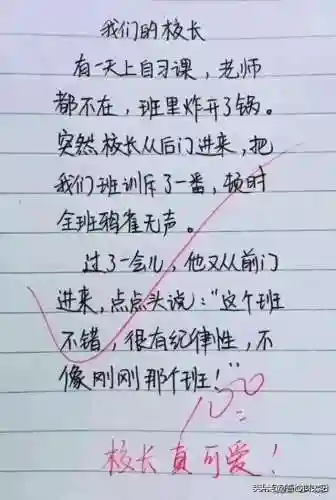 我们的校长
有一天上自习课，老师
都不在，班里炸开了锅。
突然校长从后门进来，把
我们班训斥了一番，顿时
全班鸦雀无声。
过了一会儿，他又从前门
进来，点点头说：“这个班
不错，很有纪律性，不
像刚刚那个班！”
100
校长真可爱！